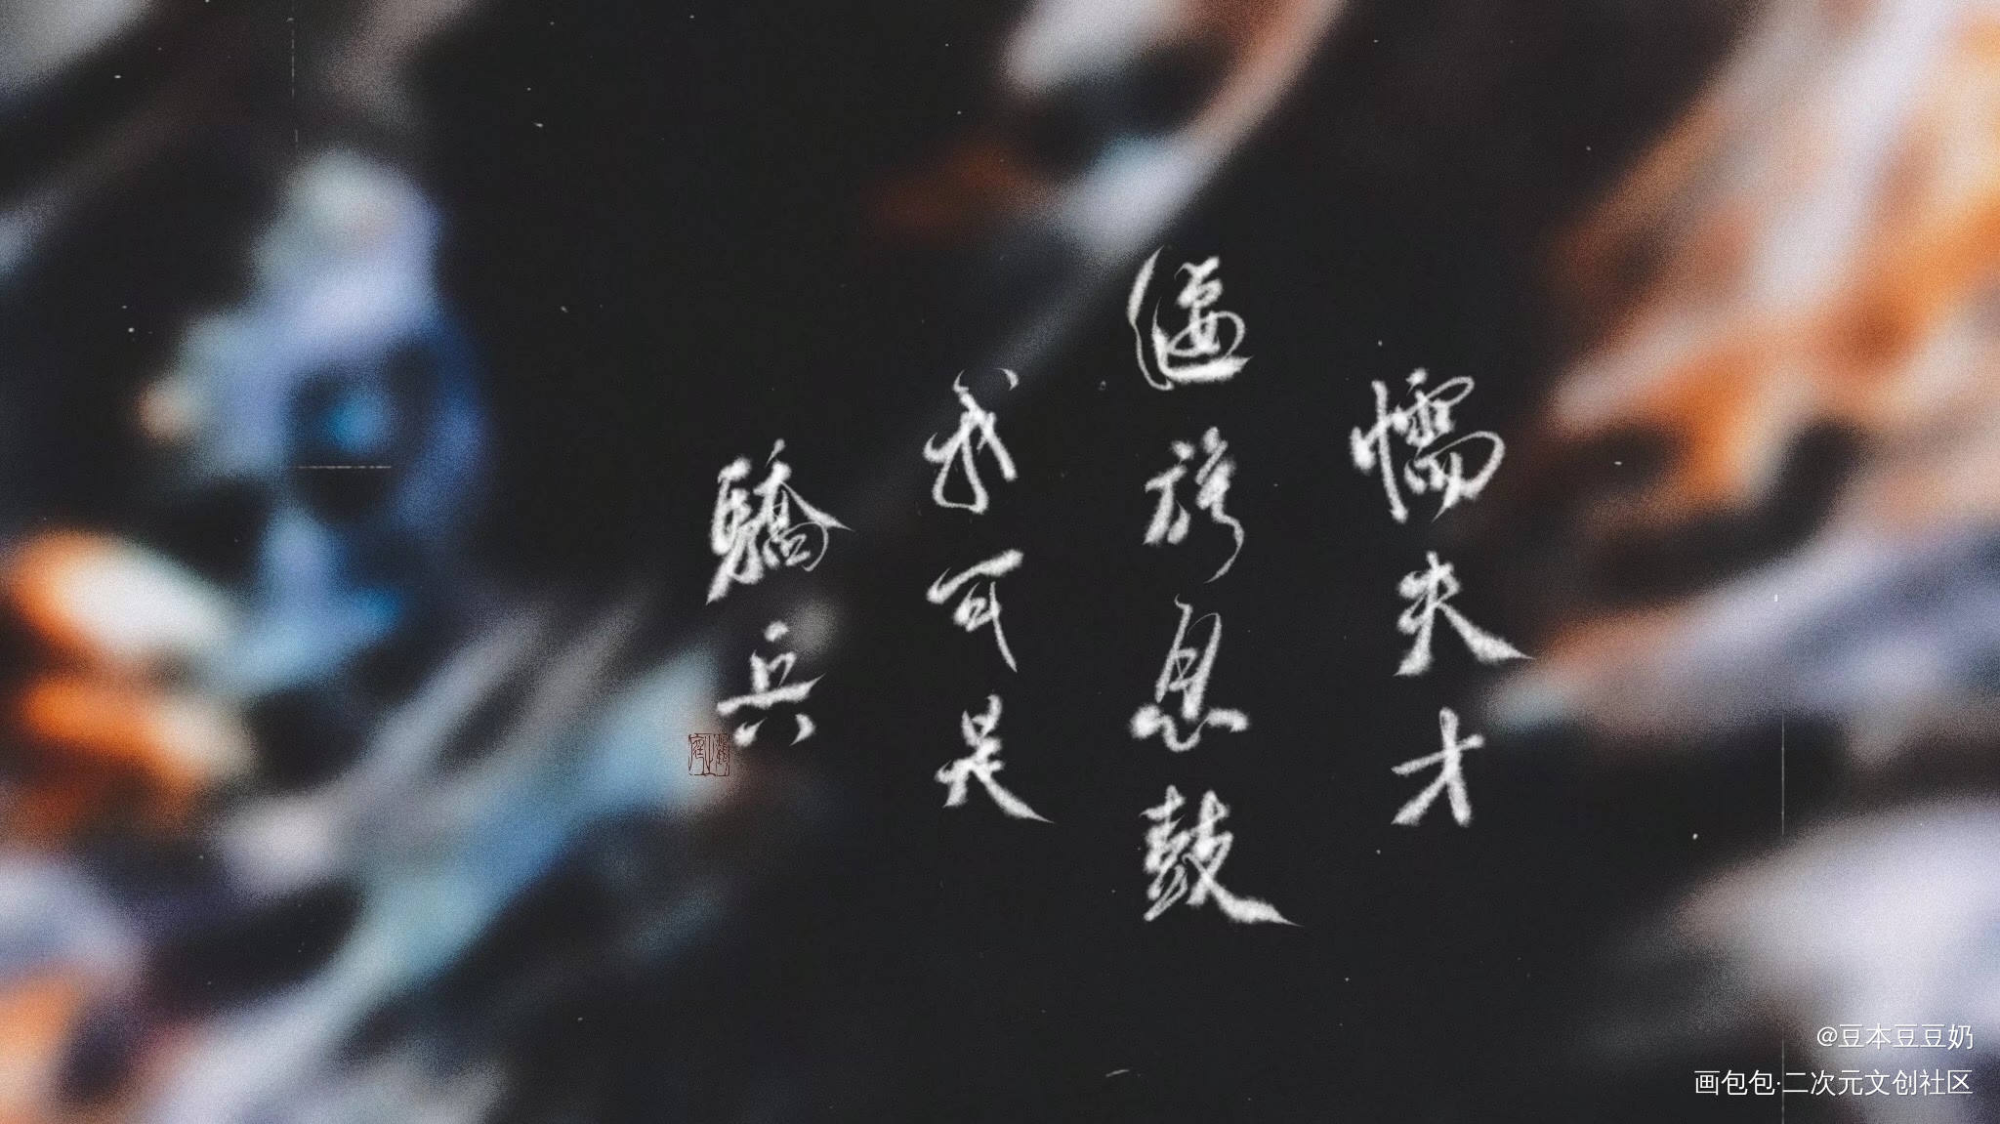 懦夫才
偃旗息鼓
我可是
驕兵
@豆本豆豆奶
画包包·二次元文创社区